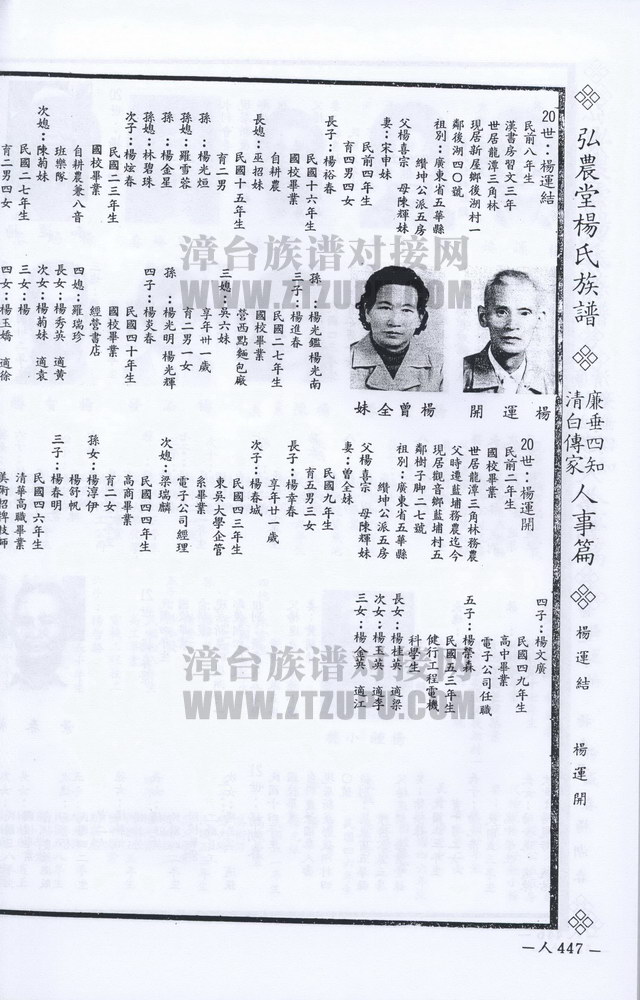 弘農堂楊氏族譜
廉垂四知
清白傳家
人事篇
楊運結
楊運開
20世：楊運結
民前八年生
漢書房習文三年
世居龍潭三角林
現居新屋鄉後湖村一
鄰後湖四〇號
祖別：廣東省五華縣
纘坤公派五房
父楊喜宗 母陳輝妹
妻：宋申妹
民前四年生
育四男四女
長子：楊裕春
民國十六年生
國校畢業
自耕農
長媳：巫招妹
民國十五年生
育二男
孫：楊光烜
孫媳：羅雪蓉
孫：楊金星
孫媳：林碧珠
次子：楊炫春
民國二三年生
國校畢業
自耕農兼八音
班樂隊
次媳：陳菊妹
民國二七年生
育二男四女
孫：楊光鑑楊光南
三子：楊進春
民國二七年生
國校畢業
營西點麵包廠
三媳：吳六妹
享年卅一歲
育二男一女
孫：楊光明楊光輝
四子：楊炎春
民國四十年生
國校畢業
經營書店
四媳：羅瑞珍
長女：楊秀英 適黃
次女：楊菊妹 適袁
三女：楊
四女：楊玉嬌 適徐
楊運開
楊曾全妹
20世：楊運開
民前二年生
國校畢業
世居龍潭三角林務農
父時遷藍埔務農迄今
現居觀音鄉藍埔村五
鄰樹子脚二七號
祖別：廣東省五華縣
纘坤公派五房
父楊喜宗 母陳輝妹
妻：曾全妹
民國九年生
育五男三女
長子：楊幸春
享年廿一歲
次子：楊春城
民國四三年生
東吳大學企管
系畢業
電子公司經理
次媳：梁瑞麟
民國四四年生
高商畢業
育二女
孫女：楊淳伊
楊舒帆
三子：楊春明
民國四六年生
清華高職畢業
美術招牌技師
四子：楊文廣
民國四九年生
高中畢業
電子公司任職
五子：楊榮森
民國五三年生
健行工程電機
科學生
長女：楊桂英 適梁
次女：楊玉英 適李
三女：楊金英 適江
漳台族谱对接网
WWW.ZTZUPU.COM
漳台族谱对接网
WWW.ZTZUPU.COM
－人447－